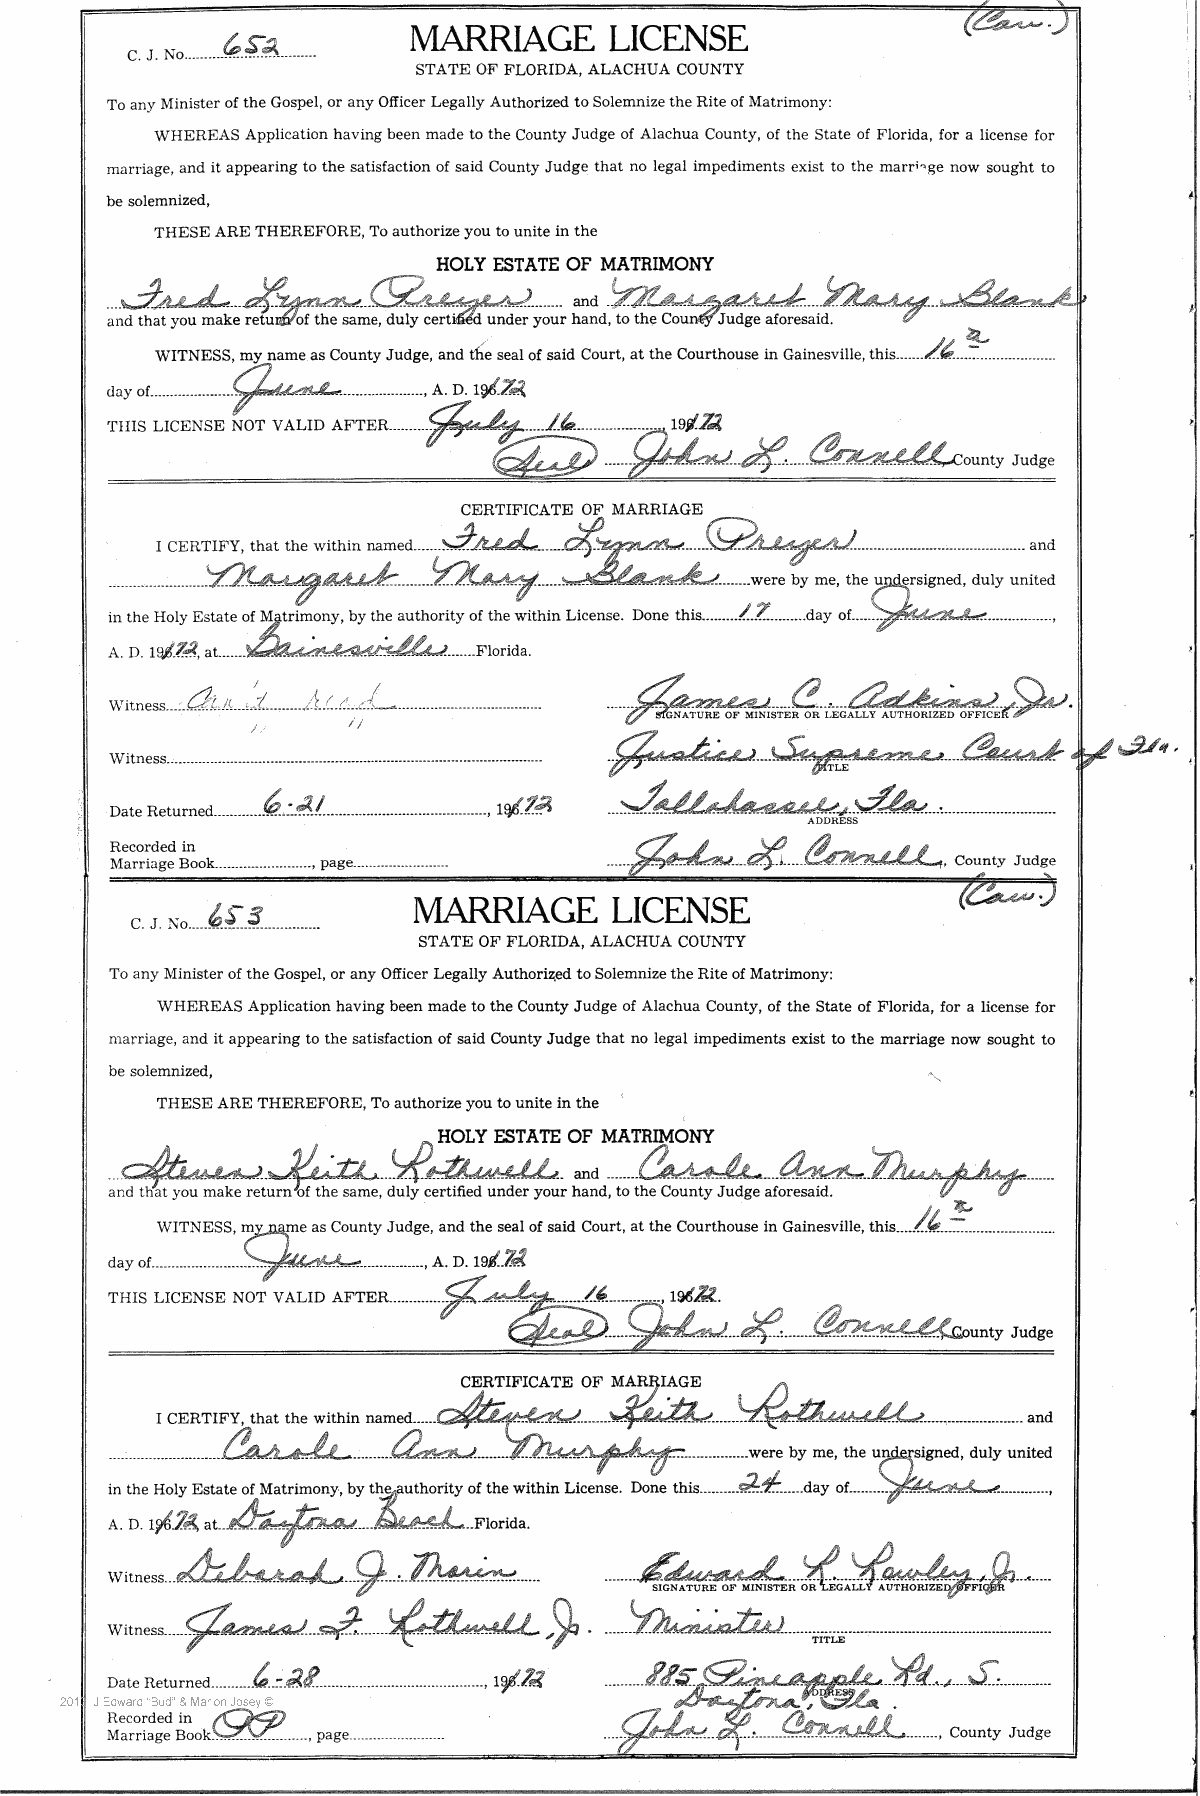 (Cau.)
C. J. No. 652 MARRIAGE LICENSE
STATE OF FLORIDA, ALACHUA COUNTY
To any Minister of the Gospel, or any Officer Legally Authorized to Solemnize the Rite of Matrimony:
WHEREAS Application having been made to the County Judge of Alachua County, of the State of Florida, for a license for
marriage, and it appearing to the satisfaction of said County Judge that no legal impediments exist to the marriage now sought to
be solemnized,
THESE ARE THEREFORE, To authorize you to unite in the
HOLY ESTATE OF MATRIMONY
Fred Lynn Preyer and Margaret Mary Blank
and that you make return of the same, duly certified under your hand, to the County Judge aforesaid.
WITNESS, my name as County Judge, and the seal of said Court, at the Courthouse in Gainesville, this 16
day of June, A. D. 1972
THIS LICENSE NOT VALID AFTER July 16, 1972
(Seal) John L. Connell County Judge
CERTIFICATE OF MARRIAGE
I CERTIFY, that the within named Fred Lynn Preyer and
Margaret Mary Blank were by me, the undersigned, duly united
in the Holy Estate of Matrimony, by the authority of the within License. Done this 17 day of June,
A. D. 1972, at Gainesville Florida.
Witness can't read James C. Adkins, Jr.
" " SIGNATURE OF MINISTER OR LEGALLY AUTHORIZED OFFICER
Witness Justice Supreme Court of Fla.
TITLE
Date Returned 6-21, 1972 Tallahassee, Fla.
ADDRESS
Recorded in
Marriage Book, page John L. Connell, County Judge
(Cau.)
C. J. No. 653 MARRIAGE LICENSE
STATE OF FLORIDA, ALACHUA COUNTY
To any Minister of the Gospel, or any Officer Legally Authorized to Solemnize the Rite of Matrimony:
WHEREAS Application having been made to the County Judge of Alachua County, of the State of Florida, for a license for
marriage, and it appearing to the satisfaction of said County Judge that no legal impediments exist to the marriage now sought to
be solemnized,
THESE ARE THEREFORE, To authorize you to unite in the
HOLY ESTATE OF MATRIMONY
Steven Keith Rothwell and Carole Ann Murphy
and that you make return of the same, duly certified under your hand, to the County Judge aforesaid.
WITNESS, my name as County Judge, and the seal of said Court, at the Courthouse in Gainesville, this 16
day of June, A. D. 1972
THIS LICENSE NOT VALID AFTER July 16, 1972.
(Seal) John L. Connell, County Judge
CERTIFICATE OF MARRIAGE
I CERTIFY, that the within named Steven Keith Rothwell and
Carole Ann Murphy were by me, the undersigned, duly united
in the Holy Estate of Matrimony, by the authority of the within License. Done this 24 day of June,
A. D. 1972, at Daytona Beach Florida.
Witness Deborah J. Morin Edward R. Rowley, Jr.
SIGNATURE OF MINISTER OR LEGALLY AUTHORIZED OFFICER
Witness James F. Rothwell, Jr. Minister
TITLE
Date Returned 6-28, 1972 885 Pineapple Rd., S.
ADDRESS
J Edward "Bud" & Marion Josey © Daytona, Fla.
Recorded in
Marriage Book PP, page John L. Connell, County Judge